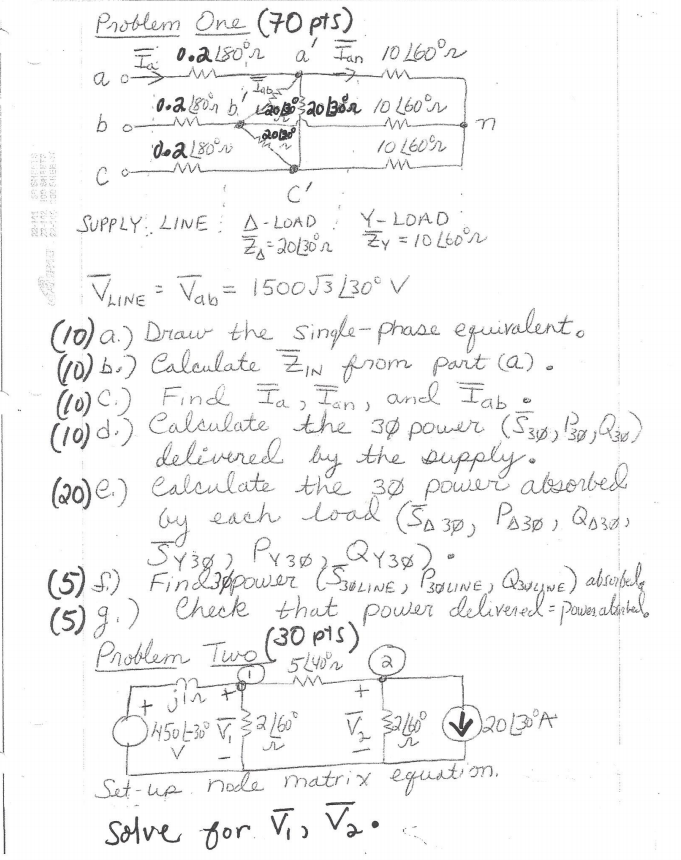 Problem One (70 pts)
Īa 0.2∠80°Ω a' Īan 10∠60°Ω
a
Īab
b 0.2∠80°Ω b' 20∠30° 20∠30°Ω 10∠60°Ω n
20∠30°
0.2∠80°Ω 10∠60°Ω
c
c'
SUPPLY LINE Δ-LOAD Y-LOAD
Z̄Δ = 20∠30°Ω Z̄Y = 10∠60°Ω
V̄LINE = V̄ab = 1500√3∠30° V
(10) a.) Draw the single-phase equivalent.
(10) b.) Calculate Z̄IN from part (a).
(10) c.) Find Īa, Īan, and Īab.
(10) d.) Calculate the 3Ø power (S̄3Ø, P3Ø, Q3Ø)
delivered by the supply.
(20) e.) Calculate the 3Ø power absorbed
by each load (S̄Δ3Ø, PΔ3Ø, QΔ3Ø,
S̄Y3Ø, PY3Ø, QY3Ø).
(5) f.) Find 3Ø power (S̄3ØLINE, P3ØLINE, Q3ØLINE) absorbed.
(5) g.) Check that power delivered = Power absorbed.
Problem Two (30 pts)
1 5∠40°Ω 2
+ j1Ω + +
450∠-30° V V̄1 2∠60° Ω V̄2 2∠60° Ω 20∠30°A
− −
Set-up node matrix equation.
Solve for V̄1, V̄2.